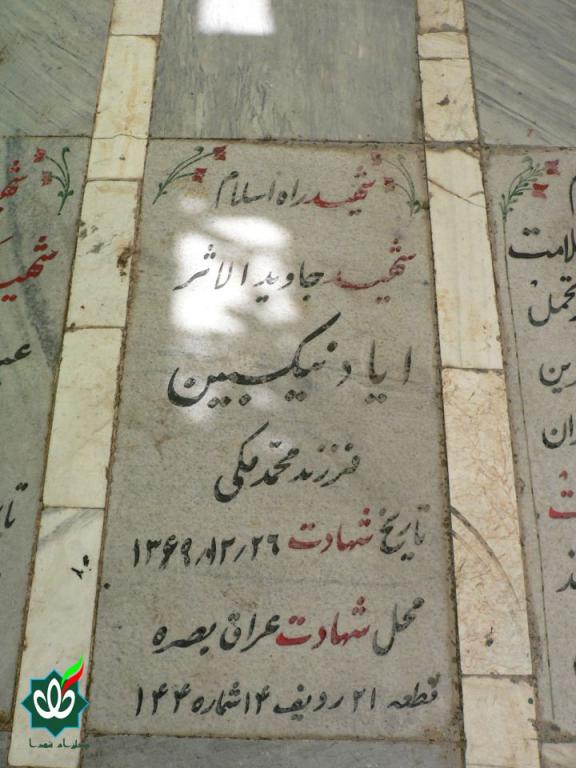 شهید راه اسلام
شهید جاوید الاثر
ایاد نیکبین
فرزند محمد مکی
تاریخ شهادت ۱۳۶۹/۱۲/۲۶
محل شهادت عراق بصره
قطعه ۲۱ ردیف ۱۴ شماره ۱۴۴
شهید
تحمل